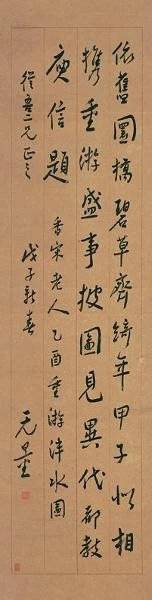 依舊圜橋碧草齊綺年甲子恰相
攜重游盛事披圖見異代都教
庾信題 香宋老人乙酉重游泮水圖
從吾二兄正之 戊子新春
无量